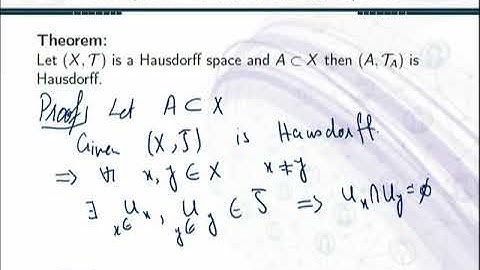 Theorem:
Let (X, T) is a Hausdorff space and A ⊂ X then (A, T_A) is
Hausdorff.
Proof: Let A ⊂ X
Given (X, J) is Hausdorff.
⇒ ∀ x, y ∈ X x ≠ y
∃ U_x, U_y ∈ J ⇒ U_x ∩ U_y = ϕ
x∈ y∈